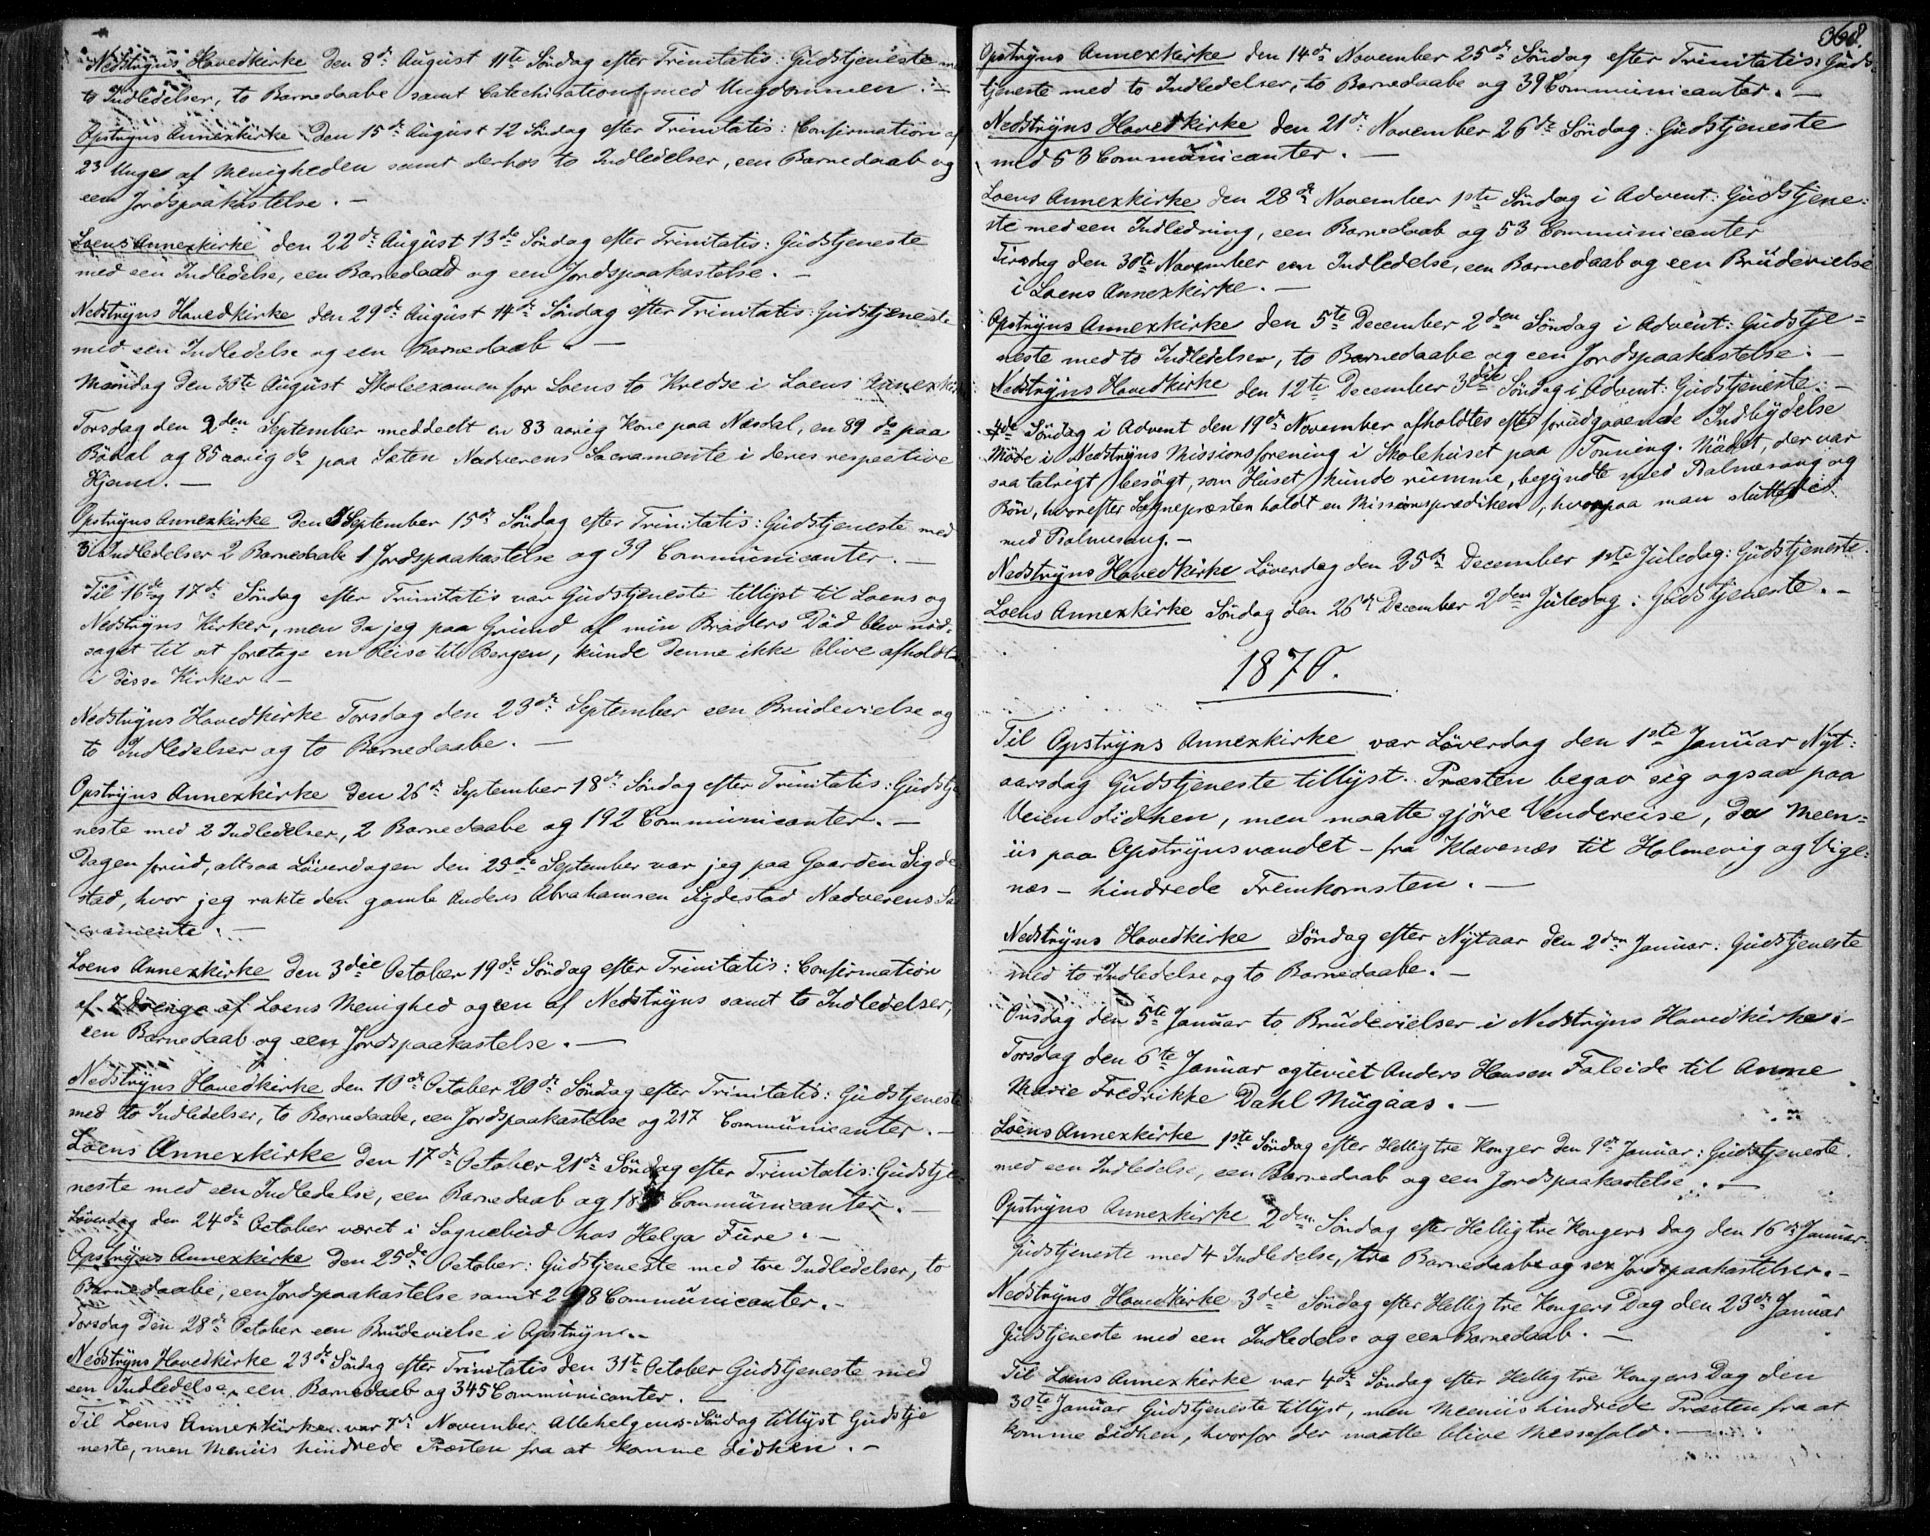 Nedstryns Hovedkirke den 8de August 11te Söndag efter Trinitatis: Gudstjeneste med
to Indledelser, to Barnedaabe samt Catechisation med Ungdommen. –
Opstryns Annexkirke den 15de August 12 Söndag efter Trinitatis: Confirmation af
23 Unge af Menigheden samt derhos to Indledelser, een Barnedaab og
een Jordspaakastelse. –
Loens Annexkirke den 22de August 13de Söndag efter Trinitatis: Gudstjeneste
med een Indledelse, een Barnedaad og een Jordspaakastelse. –
Nedstryns Hovedkirke den 29de August 14de Söndag efter Trinitatis: Gudstjeneste
med een Indledelse og een Barnedaab. –
Mandag den 30te August Skoleexamen for Loens to Kredse i Loens Annexkirke
Torsdag den 2den September meddeelt en 83 aarig Kone paa Næsdal, en 89 do paa
Bödal og 85 aarig do paa Sæten Nadverens Sacramente i deres respective
Hjem. –
Opstryns Annexkirke den 5 September 15de Söndag efter Trinitatis: Gudstjeneste med
3 Indledelser 2 Barnedaabe 1 Jordspaakastelse og 39 Communicanter. –
Til 16de og 17de Söndag efter Trinitatis var Gudstjeneste tillyst til Loens og
Nedstryns Kirker, men da jeg paa Grund af min Broders Död blev nöd-
saget til at foretage en Reise til Bergen, kunde denne ikke blive afholdt
i disse Kirker –
Nedstryns Hovedkirke Torsdag den 23de September een Brudevielse og
to Indledelser og to Barnedaabe. –
Opstryns Annexkirke den 26de September 18de Söndag efter Trinitatis: Gudstje
neste med 2 Indledelser, 2 Barnedaabe og 192 Communicanter. –
Dagen forud, altsaa Löverdagen den 25de September var jeg paa Gaarden Sigde
stad, hvor jeg rakte den gamle Anders Abrahamsen Sigdestad Nadverens Sa
cramente. –
Loens Annexkirke den 3die October 19de Söndag efter Trinitatis: Confirmation
af 7 Drenge af Loens Menighed og een af Nedstryns samt to Indledelser,
een Barnedaab og een Jordspaakastelse. –
Nedstryns Hovedkirke den 10de October 20de Söndag efter Trinitatis: Gudstjeneste
med to Indledelser, to Barnedaabe, een Jordspaakastelse og 217 Communicanter. –
Loens Annexkirke den 17de October 21de Söndag efter Trinitatis: Gudstje-
neste med een Indledelse, een Barnedaab og Communicanter. –
Löverdag den 24de October været i Sognebud hos Helga Fure. –
Opstryns Annexkirke den 25de October: Gudstjeneste med tre Indledelser, to
Barnedaabe, een Jordspaakastelse samt Communicanter. –
Torsdag den 28de October een Brudevielse i Opstryn. –
Nedstryns Hovedkirke 23de Söndag efter Trinitatis den 31te October Gudstjeneste med
een Indledelse, een Barnedaab og 345 Communicanter. –
Til Loens Annexkirke var 7de November Allehelgens-Söndag tillyst Gudstje
neste, men Meniis hindrede Præsten fra at komme didhen. –
368.
Opstryns Annexkirke den 14de November 25de Söndag efter Trinitatis: Guds-
tjeneste med to Indledelser, to Barnedaabe og 39 Communicanter. –
Nedstryns Hovedkirke den 21de November 26de Söndag: Gudstjeneste
med 53 Communicanter. –
Loens Annexkirke den 28de November 1ste Söndag i Advent: Gudstjene-
ste med een Indledning, een Barnedaab og 53 Communicanter
Tirsdag den 30te November een Indledelse, een Barnedaab og een Brudevielse
i Loens Annexkirke. –
Opstryns Annexkirke den 5te December 2den Söndag i Advent: Gudstje-
neste med to Indledelser, to Barnedaabe og een Jordspaakastelse. –
Nedstryns Hovedkirke den 12te December 3die Söndag i Advent: Gudstjeneste. –
4de Söndag i Advent den 19de November afholdtes efter forudgaaende Indbydelse
Möde i Nedstryns Missionsforening i Skolehuset paa Tonning. Mödet, der var
saa talrigt besögt, som Huset kunde rumme, begyndte med Psalmesang og
Bön, hvorefter Sognepræsten holdt en Missionsprædiken, hvorpaa man sluttede
med Psalmesang. –
Nedstryns Hovedkirke Löverdag den 25de December 1ste Juledag: Gudstjeneste.
Loens Annexkirke Söndag den 26de December 2den Juledag: Gudstjeneste. –
1870.
Til Opstryns Annexkirke var Löverdag den 1ste Januar Nyt-
aarsdag Gudstjeneste tillyst. Præsten begav sig ogsaa paa
Veien didhen, men maatte gjöre Vendereise, da Meen-
iis paa Opstrynsvandet – fra Klævenæs til Holmevig og Vige-
næs – hindrede Fremkomsten. –
Nedstryns Hovedkirke Söndag efter Nytaar den 2den Januar: Gudstjeneste
med to Indledelse og to Barnedaabe. –
Onsdag den 5te Januar to Brudevielser i Nedstryns Hovedkirke. –
Torsdag den 6te Januar ægteviet Anders Hansen Faleide til Anne
Marie Fredrikke Dahl Mugaas. –
Loens Annexkirke 1ste Söndag efter Hellig tre Konger den 9de Januar: Gudstjeneste
med een Indledelse, een Barnedaab og een Jordspaakastelse. –
Opstryns Annexkirke 2den Söndag efter Hellig tre Kongers Dag den 16de Januar
Gudstjeneste med 4 Indledelse, tre Barnedaabe og sex Jordspaakastelser. –
Nedstryns Hovedkirke 3die Söndag efter Hellig tre Kongers Dag den 23de Januar
Gudstjeneste med een Indledelse og een Barnedaab. –
Til Loens Annexkirke var 4de Söndag efter Hellig tre Kongers Dag den
30te Januar Gudstjeneste tillyst, men Meeniis hindrede Præsten fra at
komme didhen, hvorfor der maatte blive Messefald. –